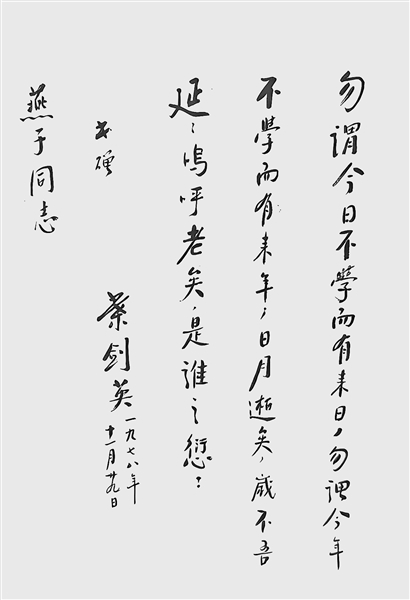 勿謂今日不學而有来日，勿谓今年
不學而有来年，日月逝矣，嵗不吾
延：嗚呼老矣，是誰之愆：
书赠
燕子同志
葉剑英
一九七八年
十一月廿九日